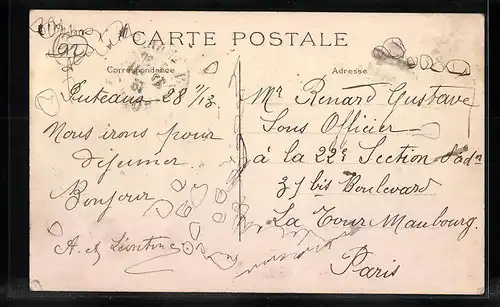 92
CARTE POSTALE
Correspondance
Adresse
Puteaux 28 1/13
Nous irons pour
déjeuner
Bonjour
A. et Léontine
Mr Renard Gustave
Sous Officier
à la 22e Section d'adn
51 bis Boulevard
La Tour Maubourg.
Paris